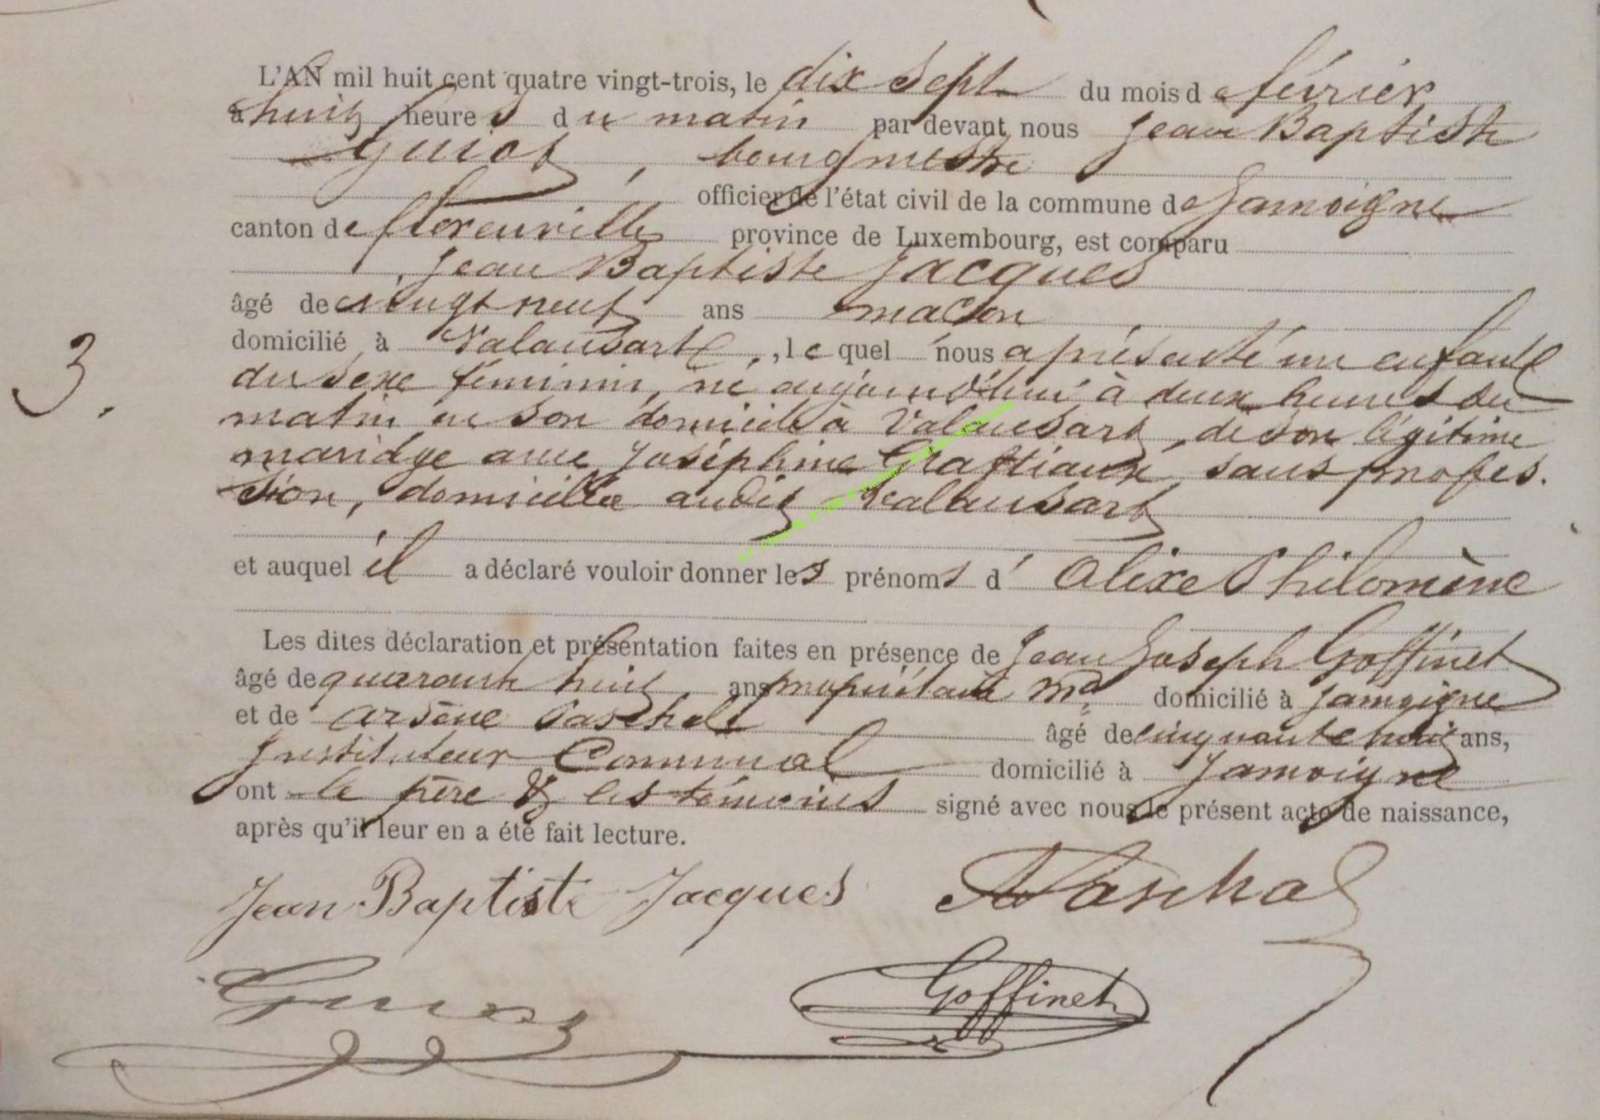 L'AN mil huit cent quatre vingt-trois, le dix sept du mois de février
à huit heures du matin par devant nous Jean Baptiste
Guiot, bourgmestre
officier de l'état civil de la commune de Jamoigne
canton de florenville province de Luxembourg, est comparu
Jean Baptiste Jacques
âgé de vingt neuf ans maçon
domicilié à Valansart, lequel nous a présenté un enfant
du sexe féminin, né aujourd'hui à deux heures du
matin en son domicile à Valansart, de son légitime
mariage avec Joséphine Graftiaux, sans profes.
sion, domiciliée audit Valansart
et auquel il a déclaré vouloir donner les prénoms d' Alixe Philomène
3.
Les dites déclaration et présentation faites en présence de Jean Joseph Goffinet
âgé de quarante huit ans propriétaire md. domicilié à Jamoigne
et de Arsène Paschal âgé de cinquante ans,
Instituteur Communal domicilié à Jamoigne
ont le père & les témoins signé avec nous le présent acte de naissance,
après qu'il leur en a été fait lecture.
Jean Baptiste Jacques APaschal
Guiot Goffinet